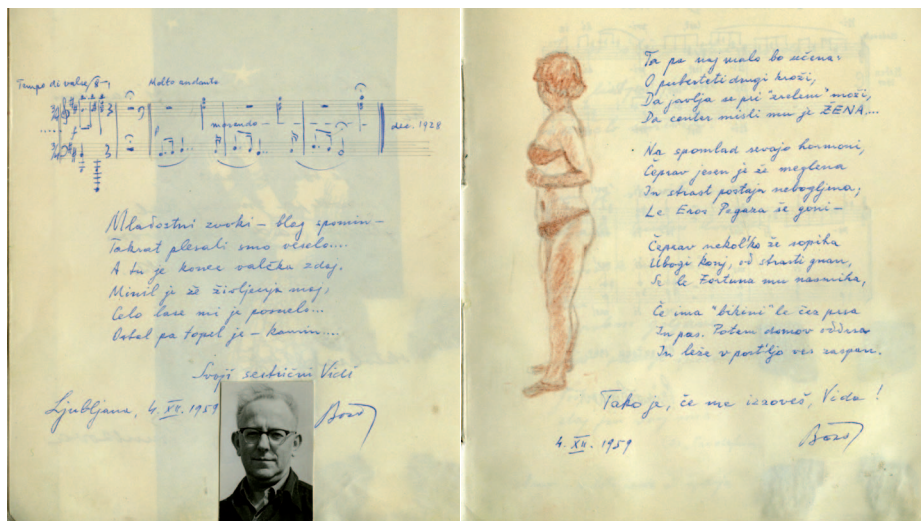 Tempo di valse
Molto andante
morendo
dec. 1928
Mladostni zvoki – bleg spomin –
Takrat plesali smo veselo....
A tu je konec valčka zdaj.
Minil je že življenja maj,
Celo lase mi je posnelo...
Ostal pa topel je – kamin....
Svoji sestrični Vidi
Ljubljana, 4. XII. 1959
Božo
Ta pa naj malo bo učena:
O puberteti drugi kroži,
Da javlja se pri "zrelem" moži,
Da center misli mu je ŽENA....
Na spomlad hormoni,
Čeprav jesen je že meglena
In strast postaja nebogljena;
Le Eros Pegaza še goni –
Čeprav nekol'ko že sopiha
Ubogi konj, od strasti gnan,
Se le Fortuna mu nasmiha,
Če ima "bikini" le čez prsa
In pas. Potem domov
In leže v post'ljo ves zaspan.
Tako je, če me izzoveš, Vida!
4. XII. 1959
Božo